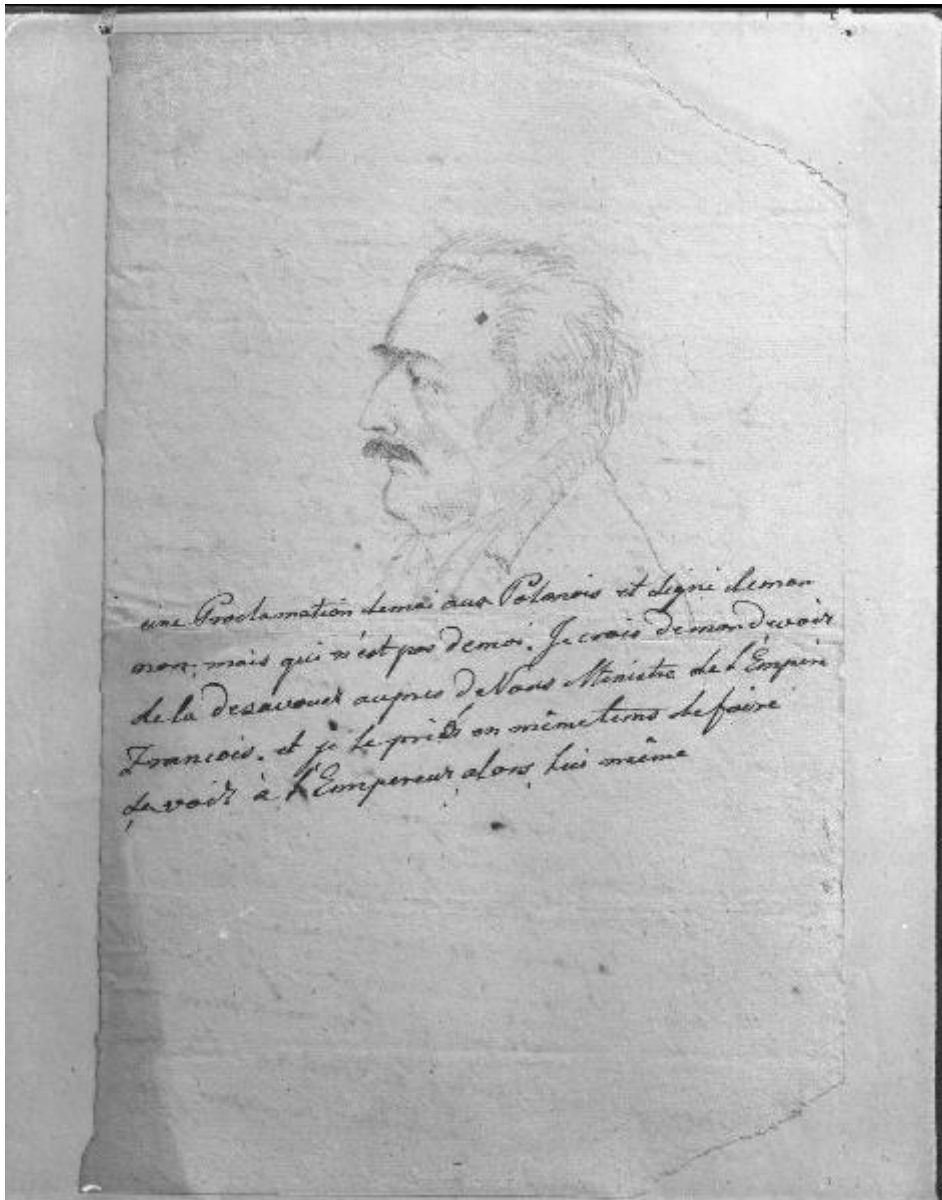 une Proclamation demoi aux Polonois et signé demon
nom, mais qui n'est pas demoi. Je crois demon devoir
de la desavouer aupres de Vous Ministre de l'Empire
François. et je le priés en mêmetems de faire
savoir à l'Empereur alors lui même